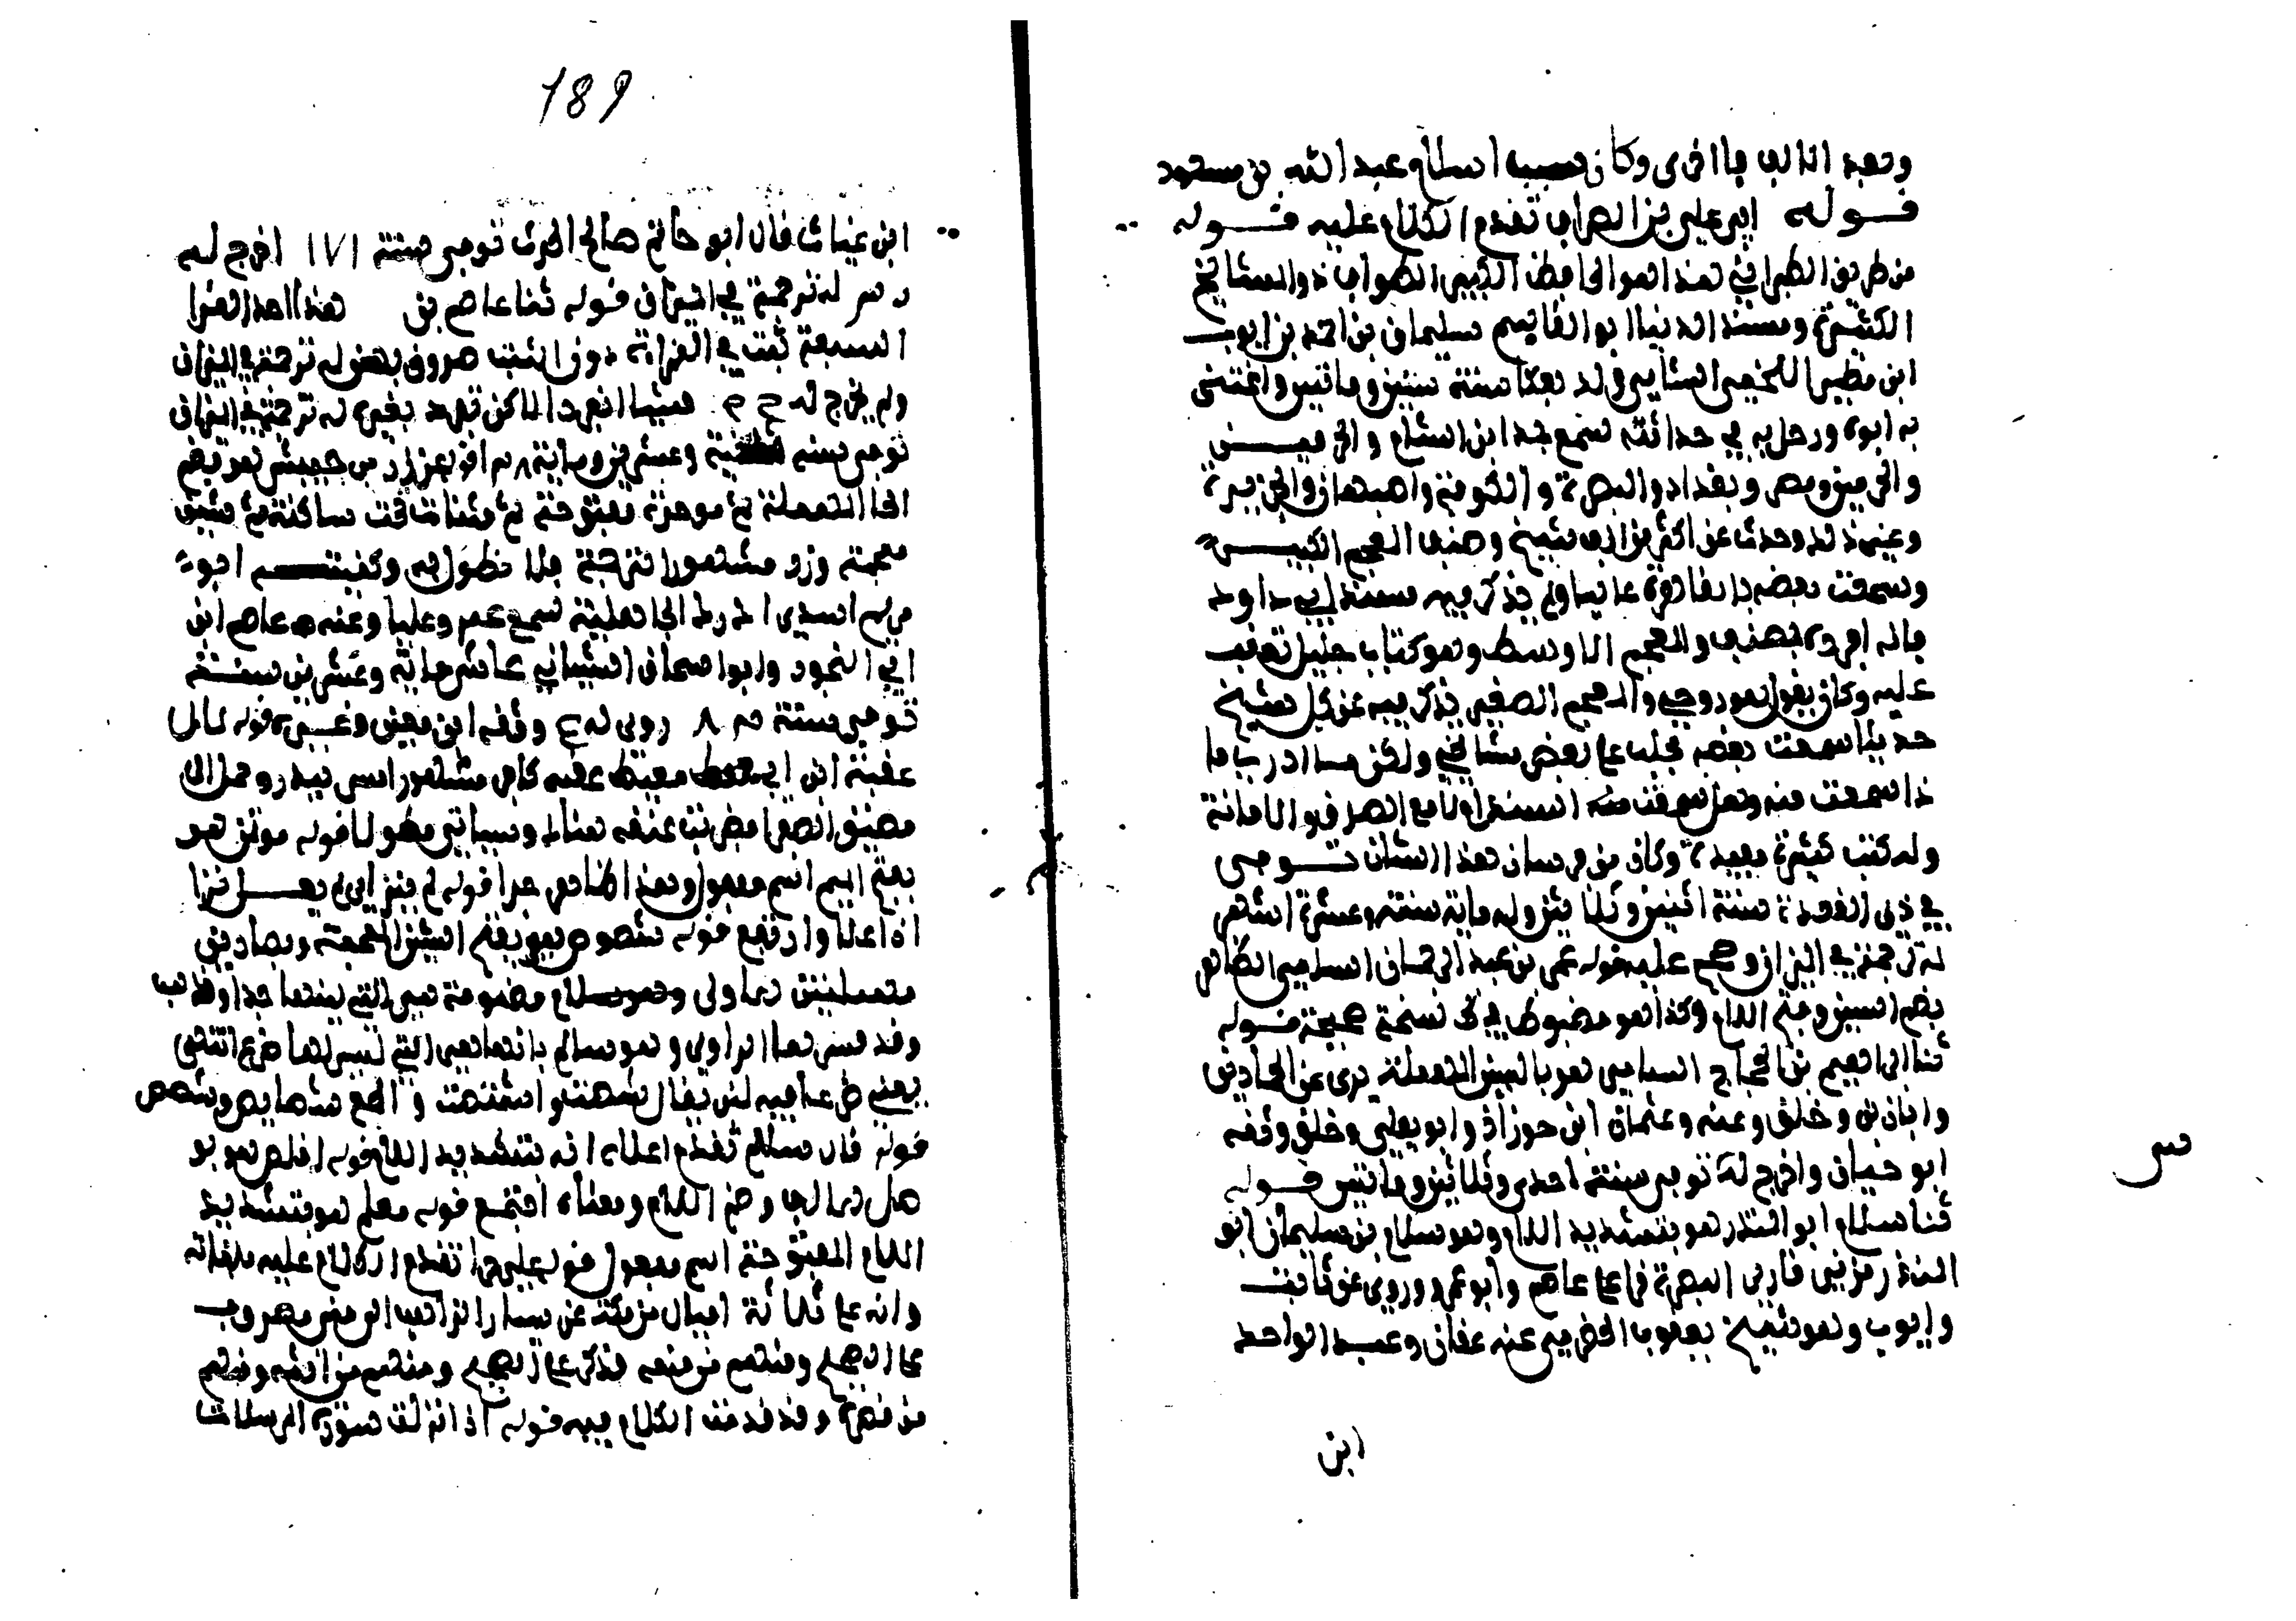 وبعد انا لها بااخرى وكان سبب اسلام عبد الله بن مسعود
قوله ابو علي بن الصواف تقدم الكلام عليه قوله
من طريق الطبراني هذا هو الحافظ الكبير الطواف ذو المشايخ
الكثيرة ومسند الدنيا ابو القاسم سليمان بن احمد بن ايوب
ابن مطير اللخمي الشامي ولد بعكا سنة ستين ومائتين واعتنى
به ابوه ورحل به في حداثته سمع بمدائن الشام والحرمين
والحرمين ومصر وبغداد والبصرة والكوفة واصبهان والجزيرة
وغير ذلك وحدث عن اكثر من الف شيخ وصنف المعجم الكبير
وسمعت بعضه بالقاهرة عاليا ولم يذكر فيه مسند ابي داود
فانه افرده بمصنف والمعجم الاوسط وهو كتاب جليل تعب
عليه وكان يقول هو روحي والمعجم الصغير يذكر فيه عن كل شيخ
حديثا سمعت بعضه بحلب على بعض مشايخي ولكن ما ادري ما
ذا سمعت منه وهل سمعت منه السند اولا مع الصدق والامانة
وله كتب كثيرة مفيدة وكان من فرسان هذا الشان توفي
في ذي القعدة سنة اثنين وثلاثين وله ماية سنة وعشرة اشهر
له ترجمة في الميزان وصح عليه قوله عمر بن عبد الرحمان السلمي الظاهر
بضم السين وفتح اللام وكذا هو مضبوط في نسخة صحيحة قوله
ثنا ابراهيم بن الحجاج السامي هو بالسين المهملة يروي عن الحمادين
وابان بن وخلق وعنه وعثمان ابن خرزاذ وابو يعلى وخلق وثقه
ابو حبان واخرج له توفي سنة احدى وثلاثين ومائتين قوله
س
ثنا سلام ابو المنذر هو بتشديد اللام وهو سلام بن سليمان ابو
المنذر مزني قارئ البصرة قرا على عاصم وابو عمرو وروى عن ثابت
وايوب وهو شيخ يعقوب الحضرمي عنه عفان وعبد الواحد
ابن
189
ابن غياث قال ابو حاتم صالح الحديث توفي سنة 171 اخرج له
له ترجمة في الميزان قوله ثنا عاصم بن هذا احد القرا
السبعة ثبت في القراءة دون الثبت صدوق يهم له ترجمة في الميزان
ولم يخرج له خ م شيئا انفرد الاكن تعهد بغيره له ترجمة في الميزان
توفي سنة وعشرين وماية قوله عن زر بن حبيش هو بضم
الحا المهملة ثم موحدة مفتوحة ثم مثناة تحت ساكنة ثم شين
معجمة وزر مشهور الترجمة فلا نطول به وكنيته ابو
مريم اسدي ادرك الجاهلية سمع عمر وعليا وعنه عاصم ابن
ابي النجود وابو اسحاق الشيباني عاش ماية وعشرين سنة
توفي سنة روى له ع وثقه ابن معين وغيره قوله لال
عقبة ابن ابي معيط عقبة كافر مشهور اسر ببدر وحمل الى
مضيق الصفرا فضربت عنقه هناك وسياتي مطولا قوله موتمن هو
بفتح الميم اسم مفعول وهذا ظاهر جدا قوله لم ينز اي لم يعل نزا
اذا علا وارتفع قوله شصوص هو بفتح الشين المعجمة وبصادين
مهملتين الاولى مضمومة هي التي لبنها جدا وذهب
وقد فسرها الراوي وهو سالم بانها هي التي ليس لها ضرع انتهى
يعني ضرعا فيه لبن يقال شصت واشصت والجمع شصايص وشصص
قوله قال سلام تقدم اعلاه انه بتشديد اللام قوله اقلص هو بو
صل وضم اللام ومعناه اجتمع قوله معلم هو بتشديد
اللام المفتوحة اسم مفعول قوله على حرا تقدم الكلام عليه بلغاته
وانه على ثلاثة اميال من مكة عن يسار الذاهب الى منى مصروف
على الصحيح ومنهم من منعه مذكر على الصحيح ومنهم من انثه ومنهم
من قصره وقد قدمت الكلام فيه قوله اذ انزلت سورة المرسلات